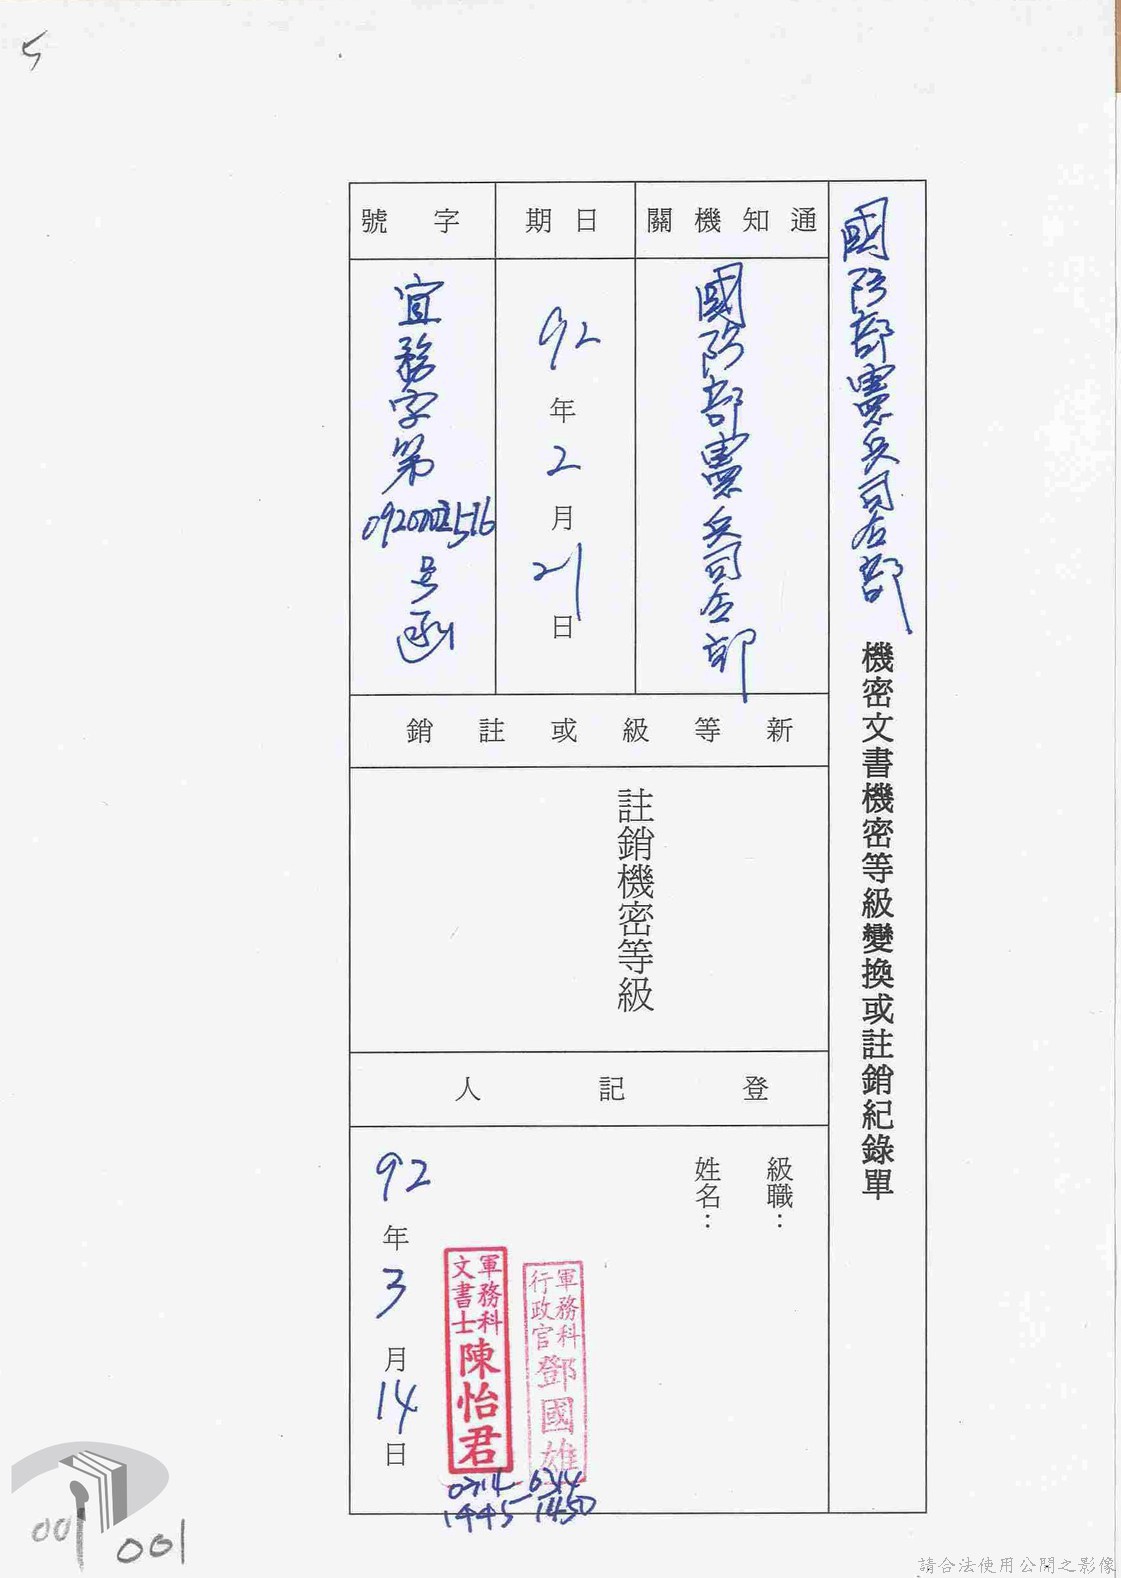 5
國防部憲兵司令部 機密文書機密等級變換或註銷紀錄單
通知機關
國防部憲兵司令部
日期
92年2月21日
字號
宜務字第
号函
新等級或註銷
註銷機密等級
登記人
級職：
姓名：
軍務科
行政官
鄧國雄
0314
1450
軍務科
文書士
陳怡君
0314
1445
92年3月14日
001
001
請合法使用公開之影像